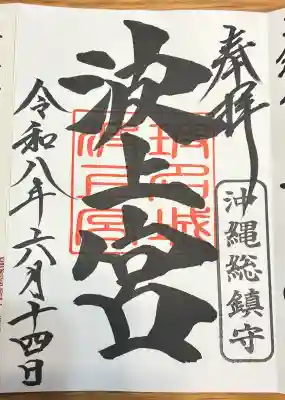 奉拝
沖縄総鎮守
波上宮
令和八年六月十四日